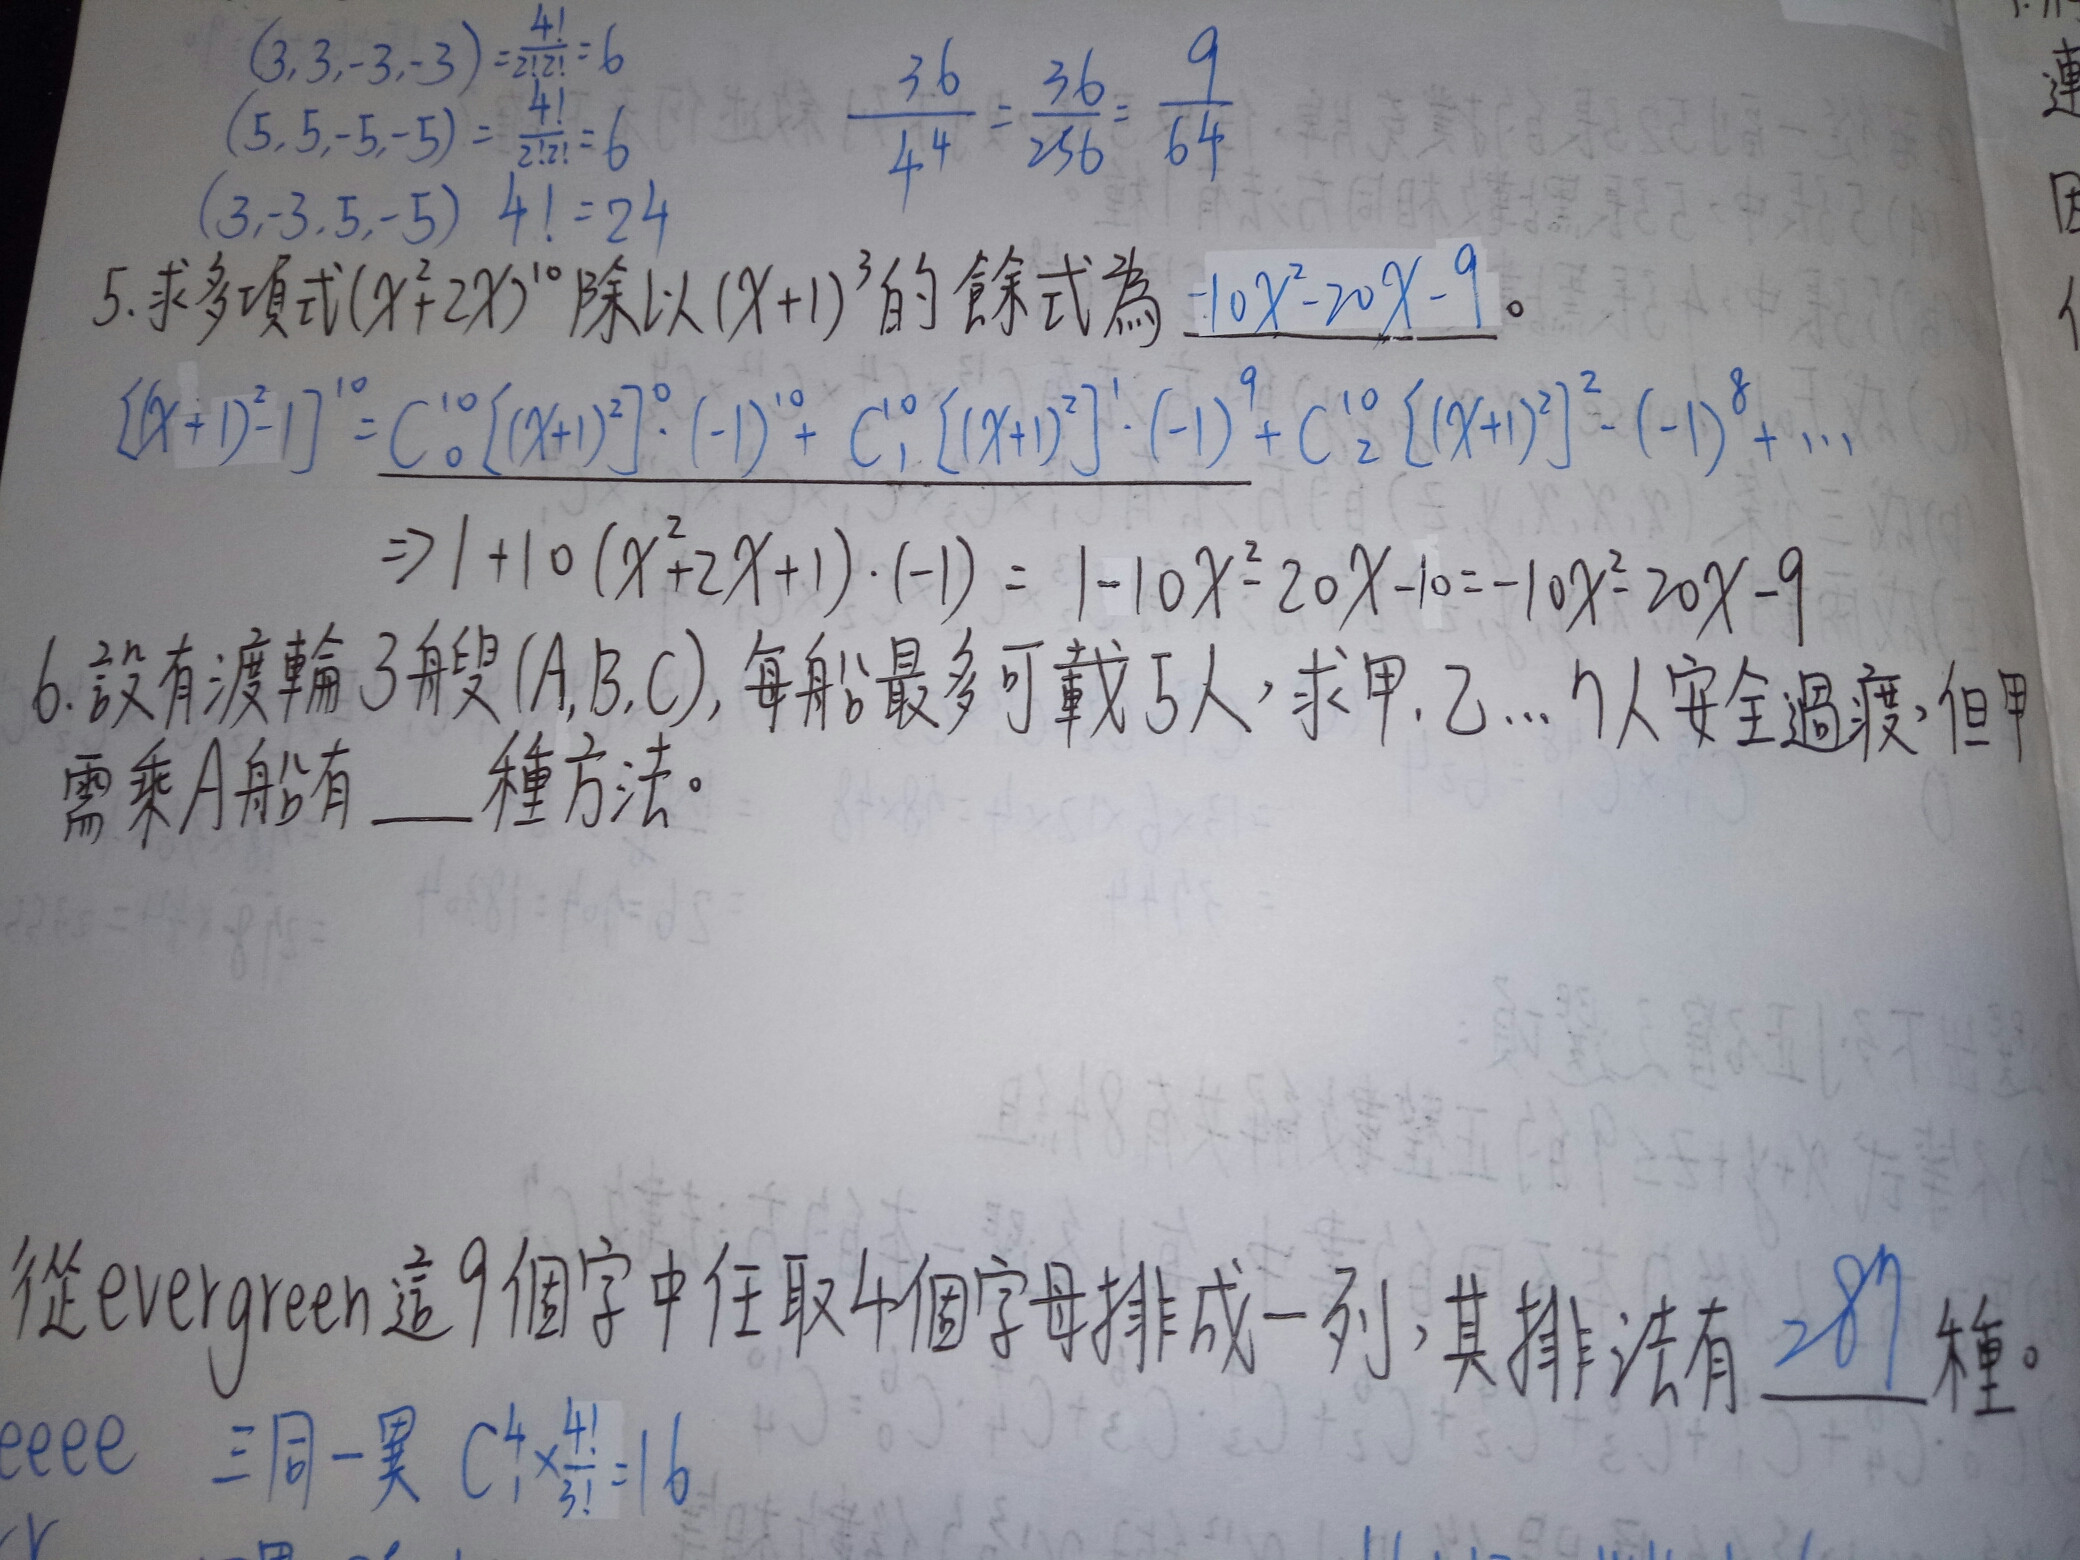 (3,3,-3,-3) = 4!/2!2! = 6
(5,5,-5,-5) = 4!/2!2! = 6
(3,-3.5,-5) 4! = 24
36/4⁴ = 36/256 = 9/64
5.求多項式(x²+2x)¹⁰除以(x+1)³的餘式為 -10x²-20x-9。
[(x+1)²-1]¹⁰ = C¹⁰₀[(x+1)²]⁰·(-1)¹⁰ + C¹⁰₁[(x+1)²]¹·(-1)⁹ + C¹⁰₂[(x+1)²]²-(-1)⁸+...
=> 1+10(x²+2x+1)·(-1) = 1-10x²-20x-10=-10x²-20x-9
6.設有渡輪3艘(A,B,C),每船最多可載5人,求甲.乙...7人安全過渡,但甲
需乘A船有___種方法。
從evergreen這9個字中任取4個字母排成一列,其排法有 287 種。
eeee 三同一異 C⁴₁×4!/3!=16